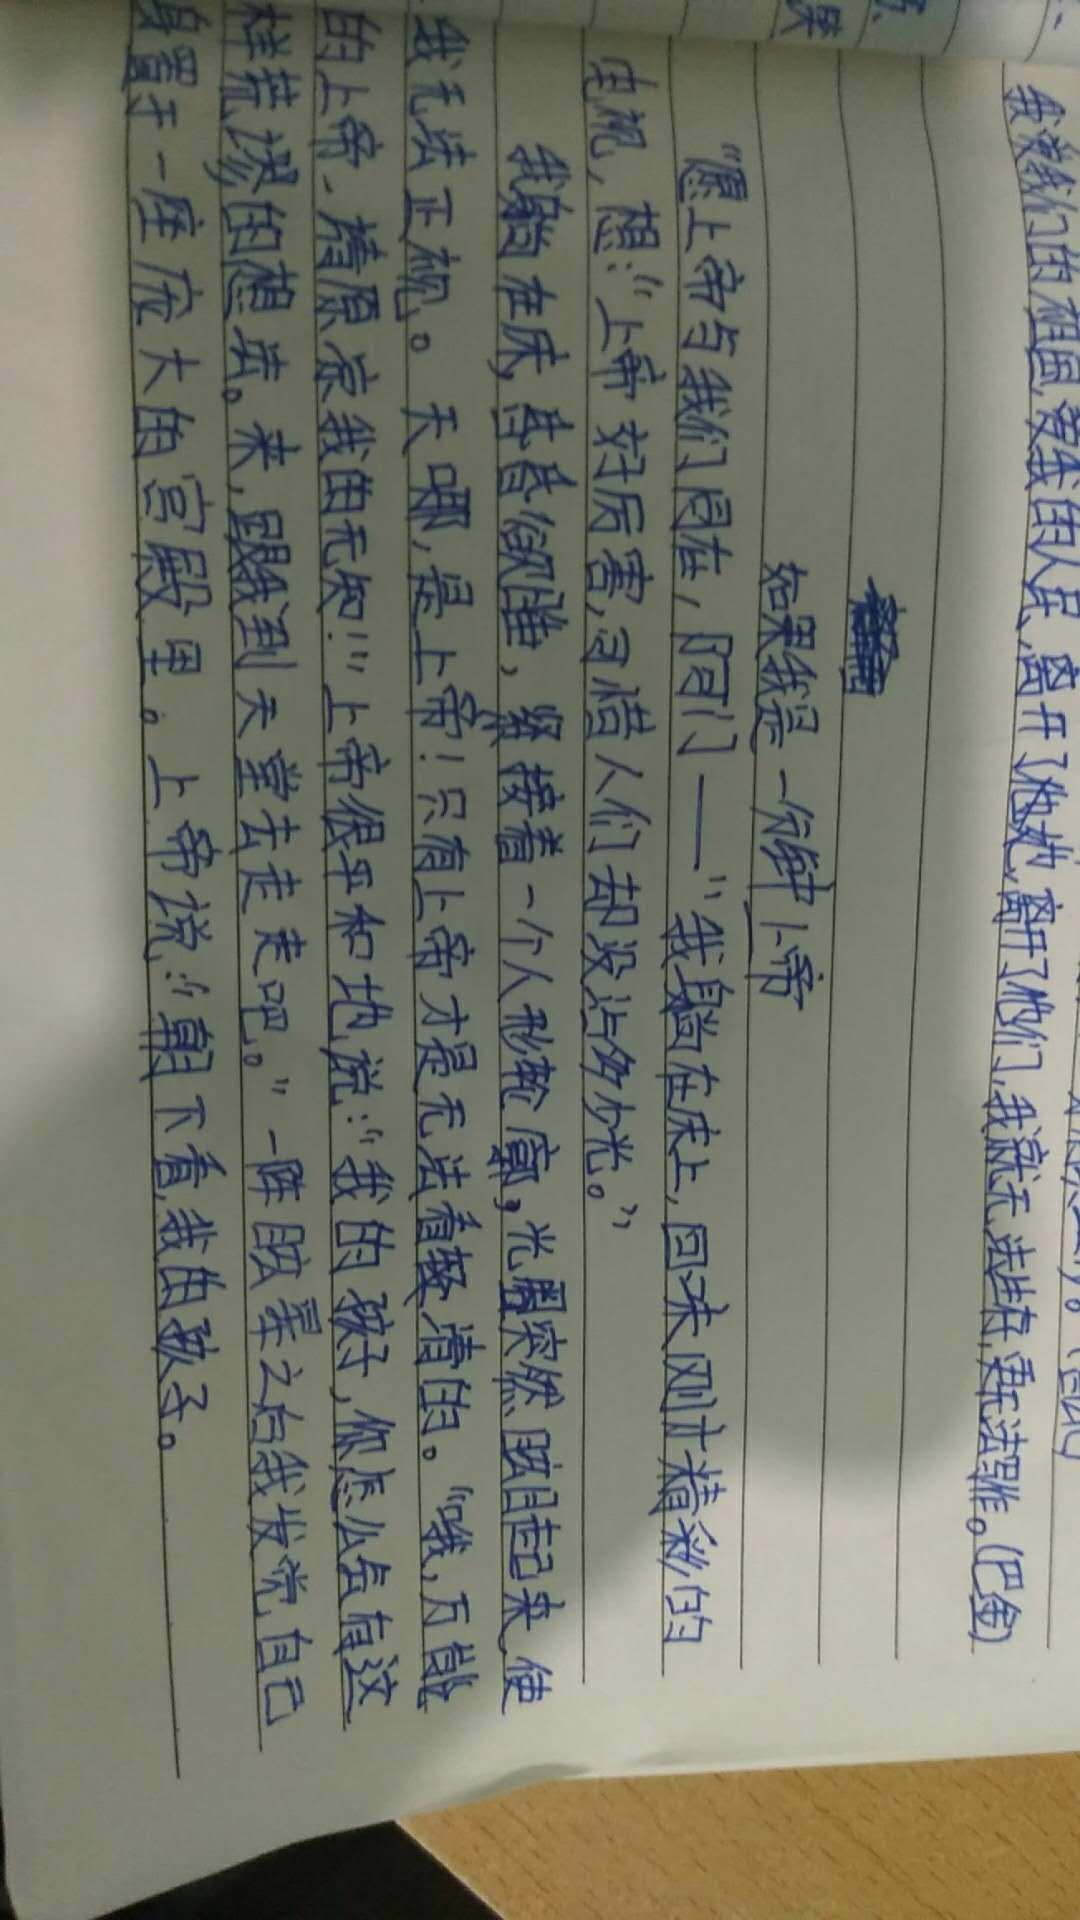 我爱我们的祖国,爱我的人民,离开了她,离开了他们,我就无法生存,更无法写作。(巴金)
如果我是一分钟上帝
“愿上帝与我们同在,阿门——”我躺在床上,回味刚才精彩的
电视,想:“上帝好厉害,可惜人们却没沾多少光。”
我躺在床,昏昏欲睡,紧接着一个人形轮廓,光圈突然明起来,使
我无法正视。天哪,是上帝!只有上帝才是无法看清的。“哦,万能
的上帝、请原谅我的无知!”上帝很平和地说:“我的孩子,你怎么会有这
样荒谬的想法。来,跟我到天堂去走走吧。”一阵眩晕之后我发觉自己
身置于一座宏大的宫殿里。上帝说:“朝下看,我的孩子。